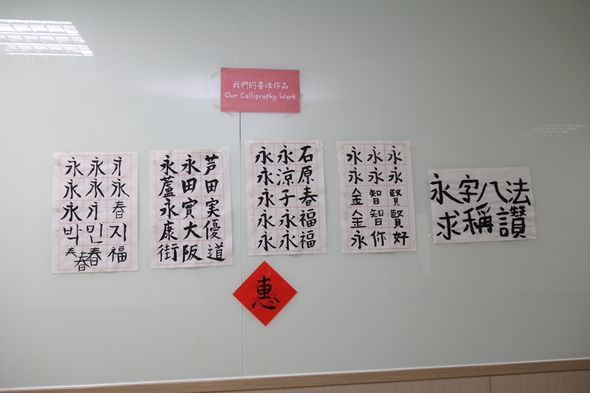 我們的書法作品
Our Calligraphy Work
永永永
永永永
永永春
박민지
春春春福
芦永永
田田蘆
実寅永
優大康
道阪街
石永永
原涼永
春子永
福永永
福永永
永永永
永永永
金智賢
金智賢
永你好
永字八法
求稱讚
惠